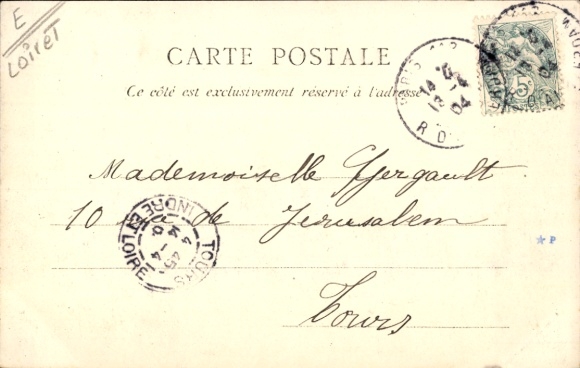 E
LOIRET
CARTE POSTALE
Ce côté est exclusivement réservé à l'adresse
Mademoiselle
10 rue de Jerusalem
Tours
TOURS
INDRE ET LOIRE
5
04
P